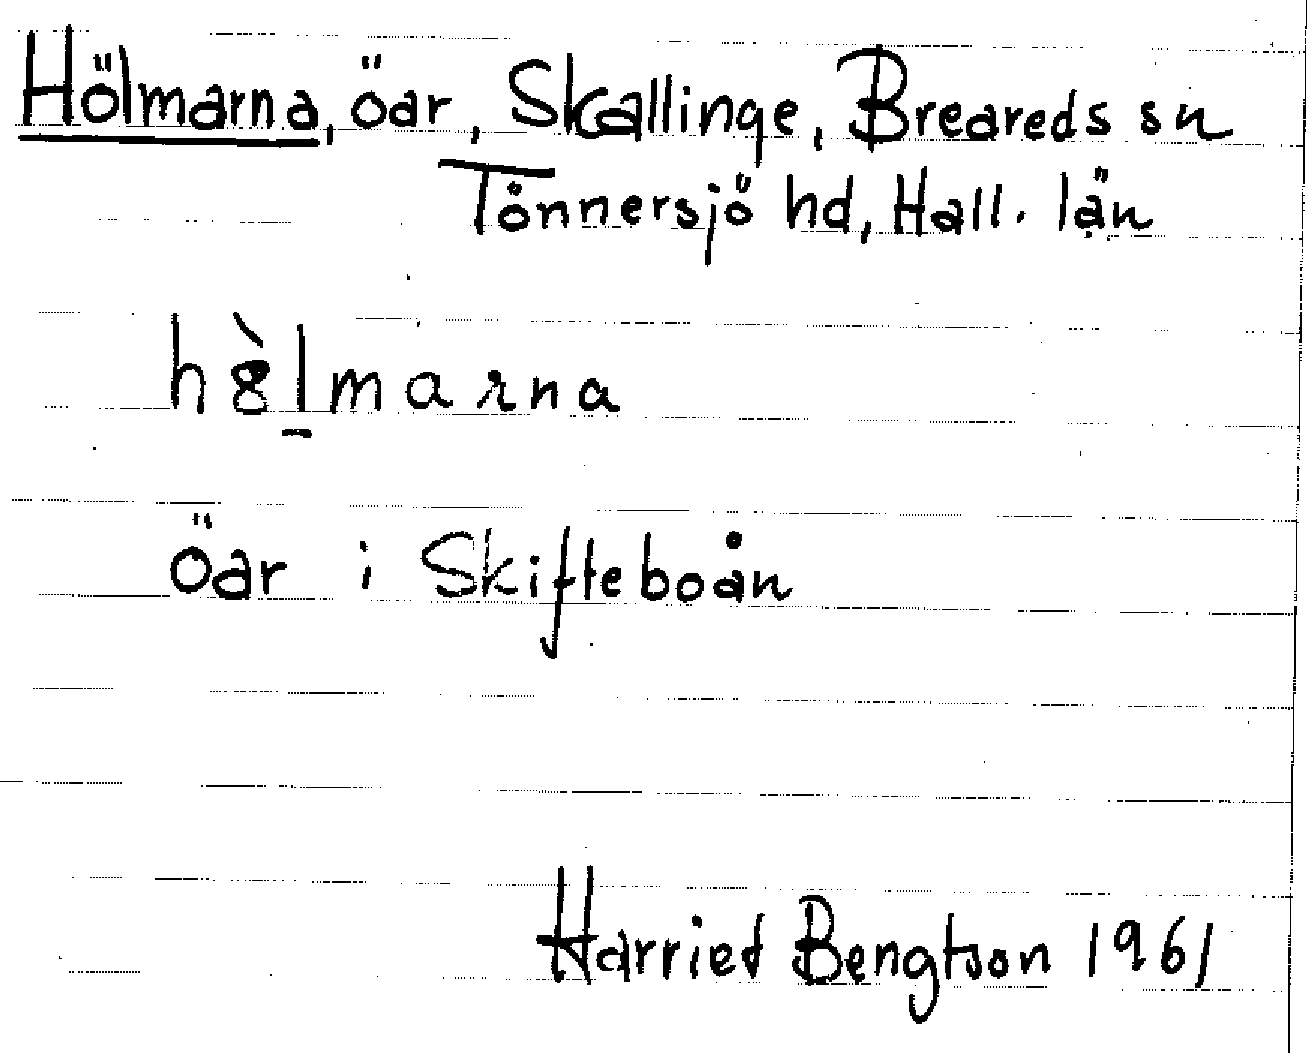 Hölmarna, öar, Skallinge, Breareds sn
Tönnersjö hd, Hall. län
h8̀l̠marna
öar i Skifteboån
Harriet Bengtson 1961